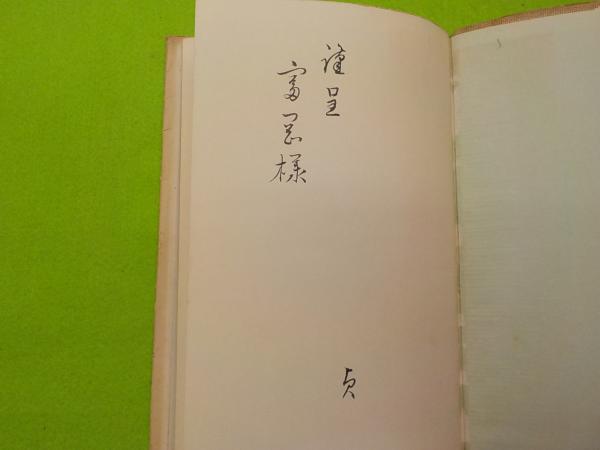 謹呈
富岡様
貞